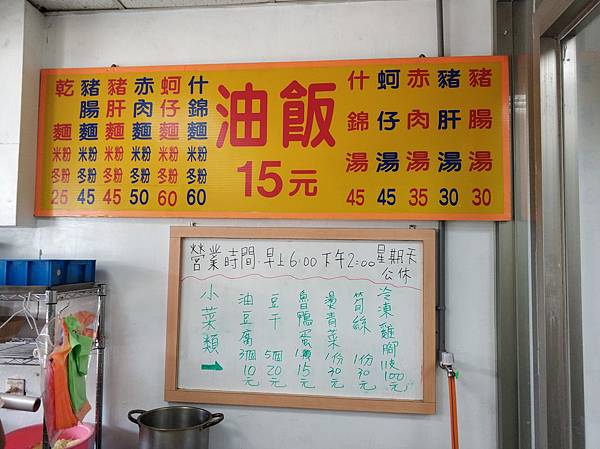 什錦麵 米粉 冬粉 60
蚵仔麵 米粉 冬粉 60
赤肉麵 米粉 冬粉 50
豬肝麵 米粉 冬粉 45
豬腸麵 米粉 冬粉 45
乾麵 米粉 冬粉 25
油飯
15元
豬腸湯 30
豬肝湯 30
赤肉湯 35
蚵仔湯 45
什錦湯 45
營業時間.早上6:00下午2:00 星期天公休
小菜類
油豆腐3個10元
豆干5個20元
魯鴨蛋1顆15元
燙青菜1份30元
筍絲1份30元
冷凍雞腳1隻100元